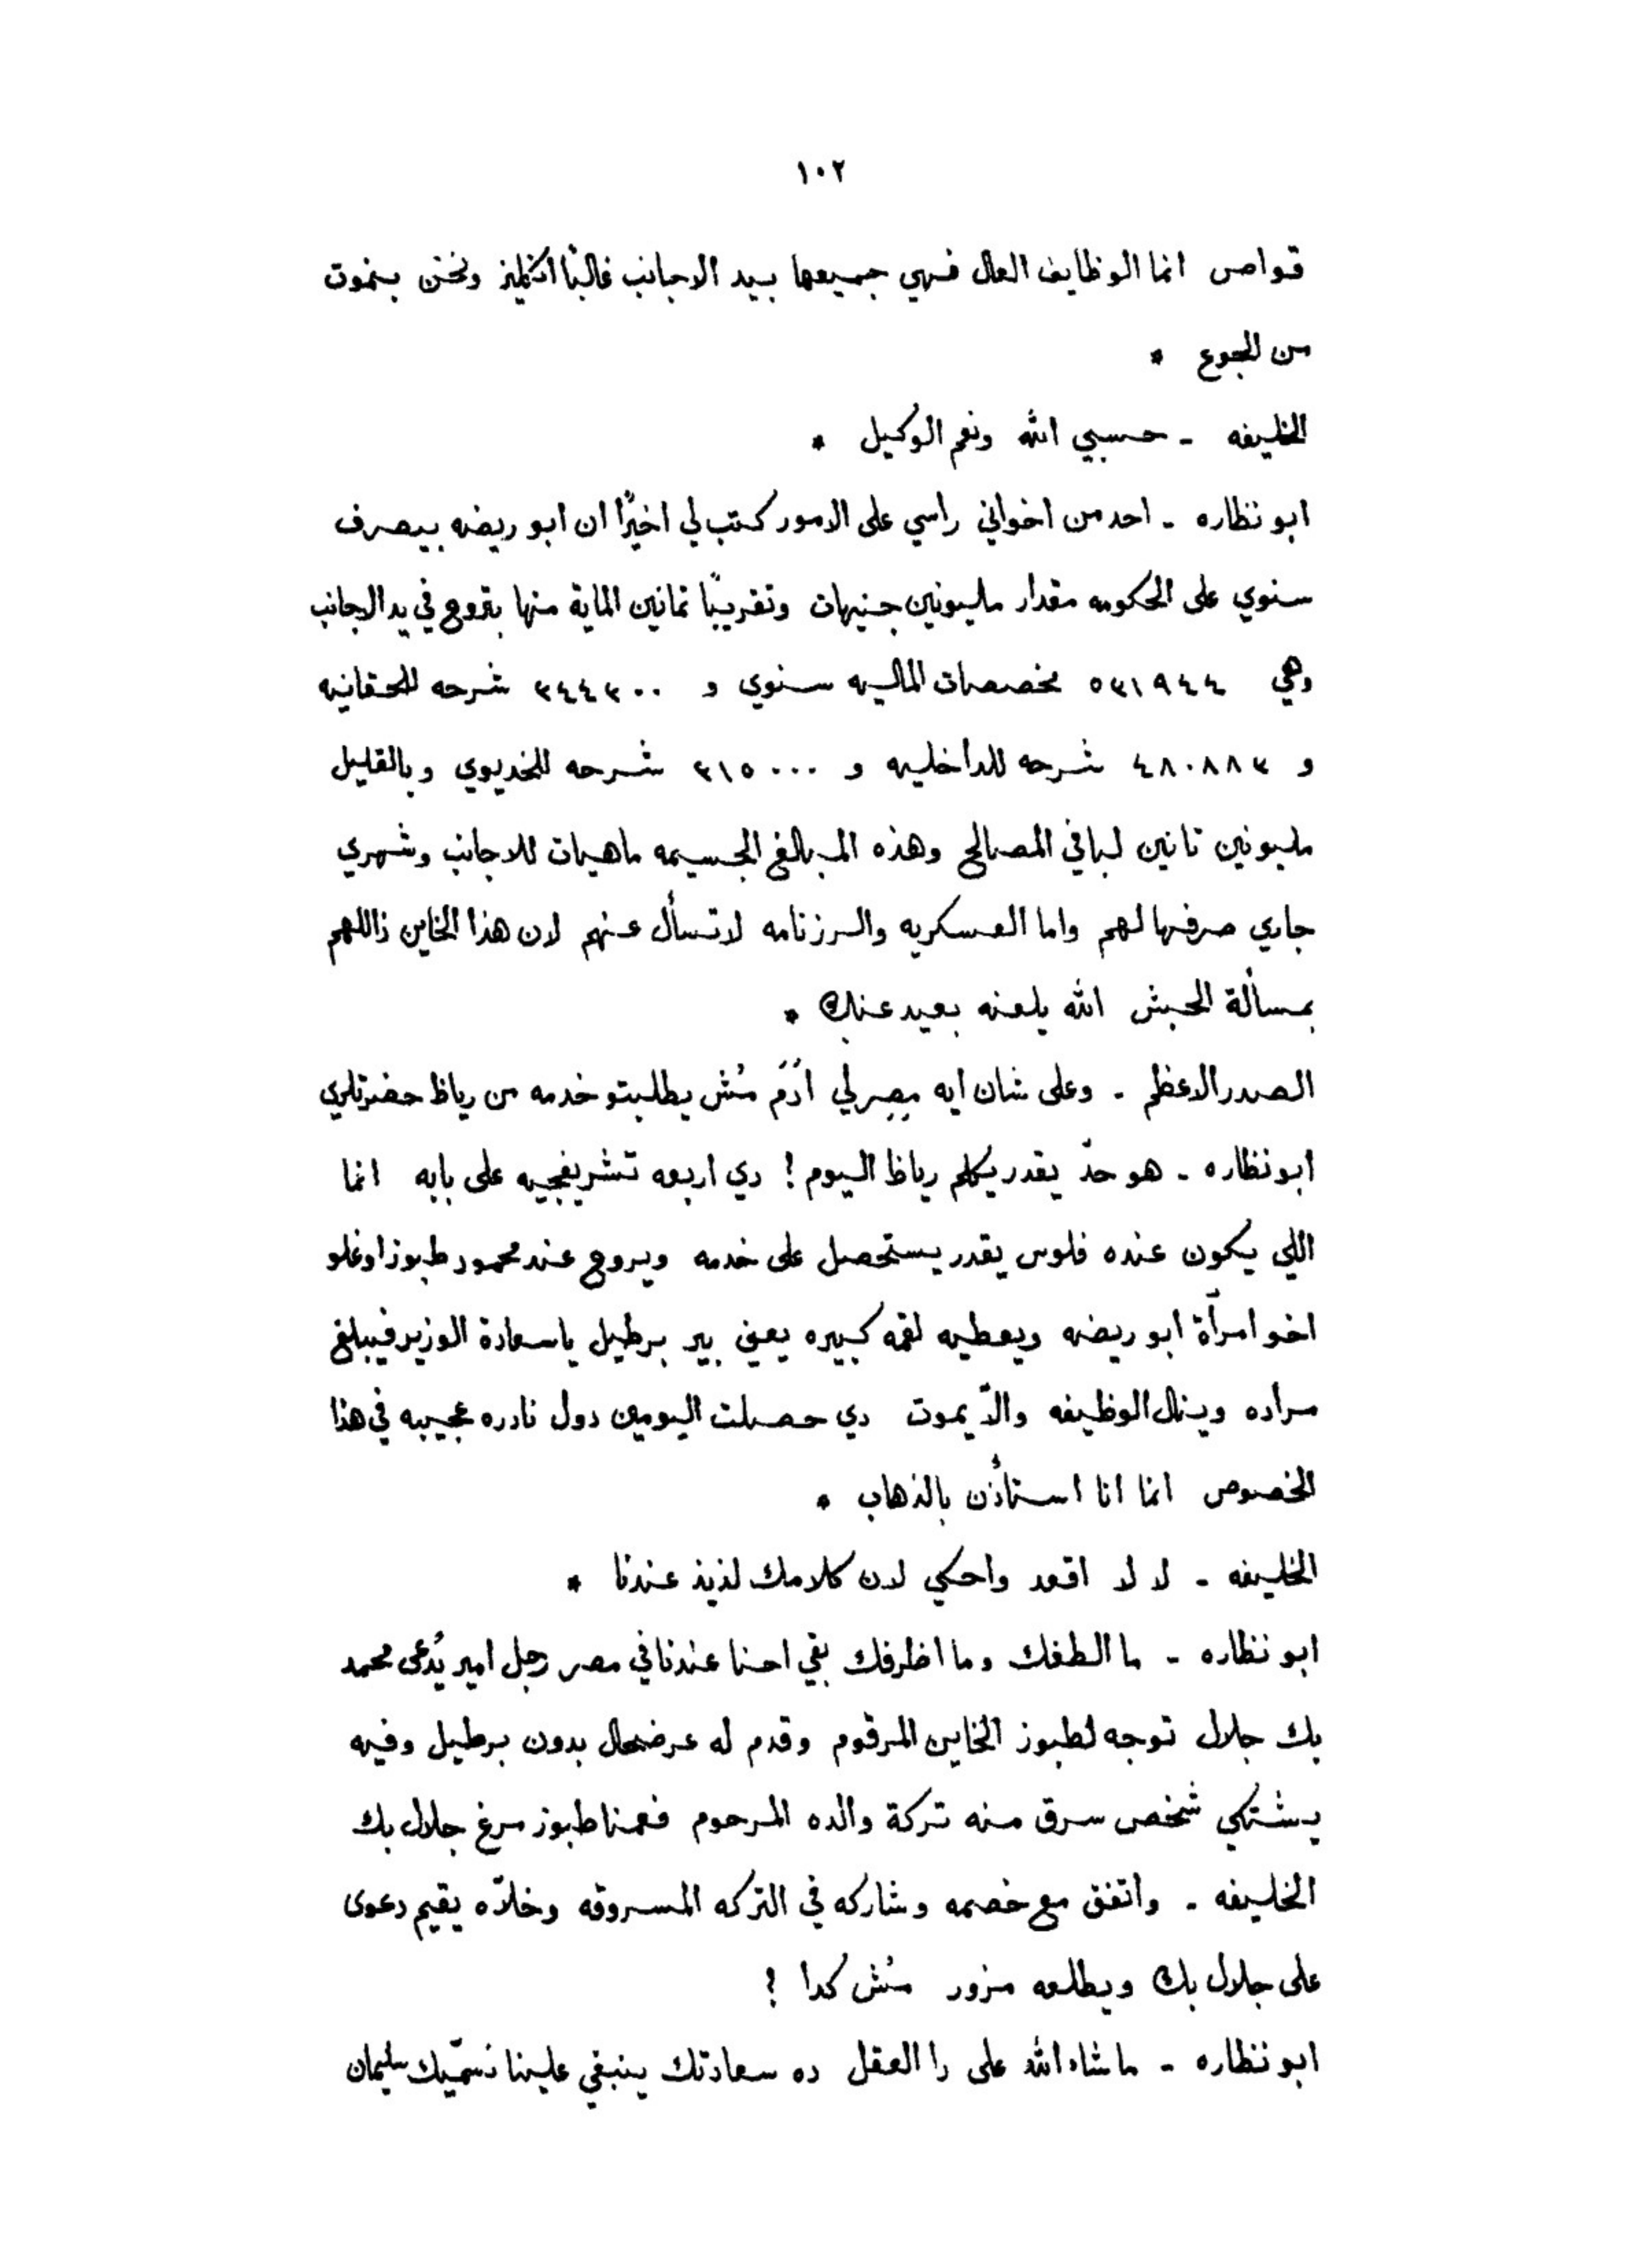 ١٠٢
قواص انما الوظايف العال فهي جميعها بيد الاجانب غالبًا انكليز ونحن بنموت
من الجوع *
الخليفه - حسبي الله ونعم الوكيل *
ابو نظاره - احد من اخواني راسي على الامور كتب لي اخيرًا ان ابو ريضه بيصرف
سنوي على الحكومه مقدار مليونين جنيهات وتقريبًا ثمانين الماية منها بتروح في يد الاجانب
وهي ٥٣١٩٤٤ مخصصات الماليه سنوي و ٣٤٤٣٠٠ شرحه للحقانيه
و ٤٨٠٨٨٣ شرحه للداخليه و ٣١٥٠٠٠ شرحه للخديوي وبالقليل
مليونين تانين لباقي المصالح وهذه المبالغ الجسيمه ماهيات للاجانب وشهري
جاري صرفها لهم واما العسكريه والرزنامه لا تسأل عنهم لان هذا الخاين زاللهم
بمسألة الحبش الله يلعنه بعيد عنك *
الصدر الاعظم - وعلى شان ايه مصرلي اَدَم مُش يطلبتو خدمه من رياظ حضرتلري
ابو نظاره - هو حدّ يقدر يكلم رياظ اليوم ! دي اربعه تشريفجيه على بابه انما
اللي يكون عنده فلوس يقدر يستحصل على خدمه ويروح عند محمود طبوز اوغلو
اخو امرآة ابو ريضه ويعطيه لقمه كبيره يعني بير برطيل يا سعادة الوزير فيبلغ
مراده وينال الوظيفه والّا يموت دي حصلت اليومين دول نادره عجيبه في هذا
الخصوص انما انا استأذن بالذهاب *
الخليفه - لا لا اقعد واحكي لان كلامك لذيذ عندنا *
ابو نظاره - ما الطفك وما اظرفك بقي احنا عندنا في مصر رجل امير يُدعى محمد
بك جلال توجه لطبوز الخاين المرقوم وقدم له عرضحال بدون برطيل وفيه
يشتكي شخص سرق منه تركة والده المرحوم فهمنا طبوز مرغ جلال بك
الخليفه - واتفق مع خصمه وشاركه في التركه المسروقه وخلّاه يقيم دعوى
على جلال بك ويطلعه مزور مُش كدا ?
ابو نظاره - ماشاء الله على دا العقل ده سعادتك ينبغي علينا نسمّيك سليمان